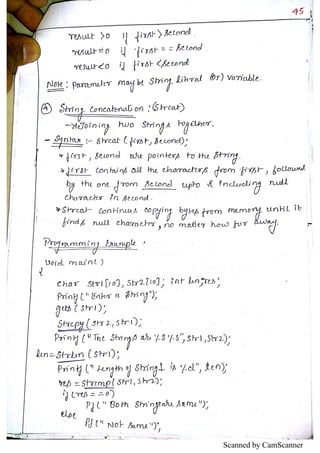 45
result >0 if first > Second
result=0 if first == Second
result<0 if first <Second
Note: Parameter may be String literal (or) variable.
④ String Concatenation : (Strcat)
- Joining two Strings together.
- Syntax :- Strcat (first, Second);
* first, Second are pointers to the String.
* first Contains all the characters from first, followed
by the one from Second upto & Including null
character in Second.
* Strcat Continues Copying bytes from memory until it
finds null character, no matter how far away.
Programming Example
void main( )
{
char str1[10], str2[10]; int len,res;
Printf("Enter a String");
gets (str1);
Strcpy (str2, str1);
Printf ("The Strings are %s %s", str1, str2);
len=Strlen (str1);
Printf (" Length of String1 is %d", len);
res = Strcmp( str1, str2);
if (res = = 0)
Pf (" Both Strings are Same");
else
Pf (" Not Same");
Scanned by CamScanner